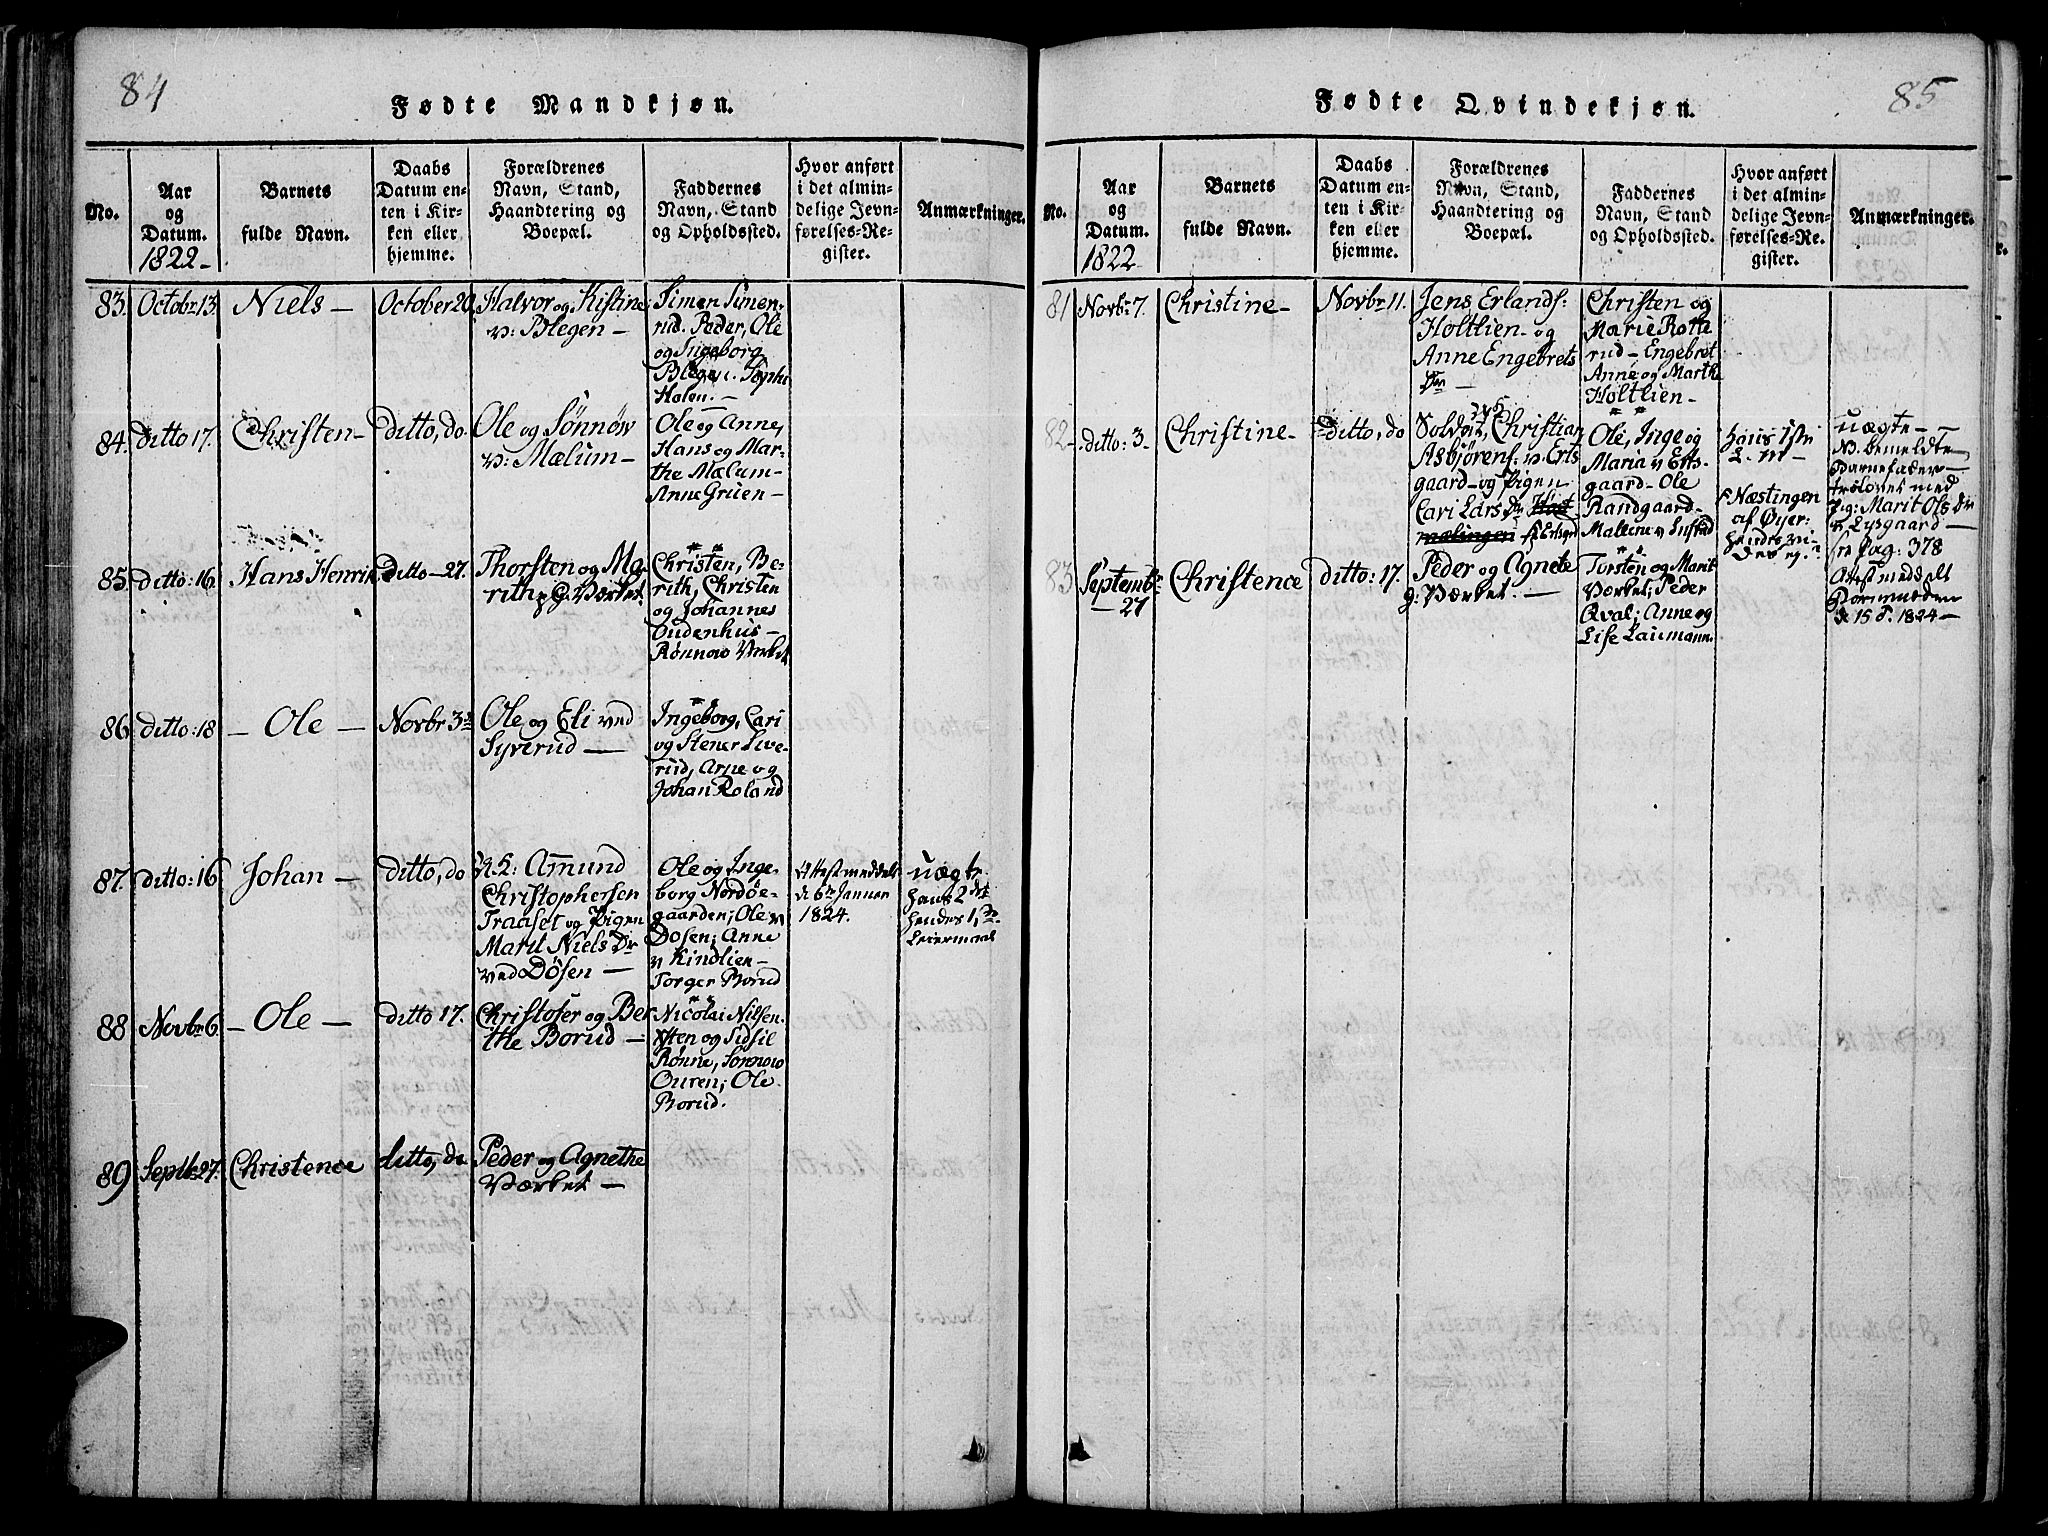 84
Fødte Mandkjøn.
No.
Aar
og
Datum.
1822-
Barnets
fulde Navn.
Daabs
Datum en-
ten i Kir-
ken eller
hjemme.
Forældrenes
Navn, Stand,
Haandtering og
Boepæl.
Faddernes
Navn, Stand
og Opholdssted.
Hvor anført
i det almin-
delige Jevn-
førelses-Re-
gister.
Anmærkninger.
83. Octobr. 13. Niels - October 20
Halvor og Kistine
v: Blegen -
Simen Simen-
rud. Peder, Ole
og Ingeborg
Blegen. Sophi
Holen. -
84. Ditto 17. Christen - Ditto, do.
Ole og Sønnøv
v: Mælum -
Ole og Anne,
Hans og Mar-
the Mælum -
Anne Gruen -
85. Ditto: 16. Hans Henrik Ditto - 27.
Thorsten og Ma-
rith p G. Værket.
Christen, Be-
rith, Christen
og Johannes
Oudenhus -
Rønnow Værket
86 Ditto: 18 - Ole - Novbr 3
Ole og Eli ved
Syverud -
Ingeborg, Cari
og Stener Live-
rud, Arne og
Johan Roland
87. Ditto: 16 Johan - Ditto, do
N. S: Amund
Christophersen
Traaset og Pigen
Marit Niels Dr
ved Døsen -
Ole og Inge-
borg Nordøe-
gaarden; Ole v
Dosen; Anne
v Kindlien -
Torger Borud
Attest meddelt
d. 6te Januar
1824.
Uægte.
hans 2det
hendes 1ste
Leiermaal
88 Novbr 6. - Ole - Ditto 17.
Christofer og Ber
the Borud -
Nicolai Nilsen-
Sten og Sidsil
Rønne, Sønnow
Ouren; Ole
Borud.
89 Septb. 27. Christence Ditto, do
Peder og Agnethe
Værket -
85
Fødte Qvindekjøn.
No.
Aar
og
Datum.
1822
Barnets
fulde Navn.
Daabs
Datum en-
ten i Kir-
ken eller
hjemme.
Forældrenes
Navn, Stand,
Haandtering og
Boepæl.
Faddernes
Navn, Stand
og Opholdssted.
Hvor anført
i det almin-
delige Jevn-
førelses-Re-
gister.
Anmærkninger.
81 Novbr. 7. Christine - Novbr 11.
Jens Erlands:
Holtlien - og
Anne Engebrets
Dr -
Christen og
Marie Rotte
rud - Engebret
Anne og Marthe
Holtlien -
82 - Ditto: 3. Christine - Ditto, do
Soldat, Christian
Asbjørens. v. Erts
gaard - og Pigen
Cari Lars Dr
Ole, Inge og
Maria v Erts-
gaard - Ole
Randgaard -
Mallene v
hans 1ste
L. m -
Næstingen
af Øyer:
Uægte -
NB. bemeldte
Barnefader -
trolovet med
P.g: Marit Ols Dr
v Lysgaard -
pag: 378
Attest meddelt
d 15 1824 -
83 Septembr.
- 27
Christence Ditto: 17.
Peder og Agnete
g: Værket. -
Torsten og Marit
Værket; Peder
Qval; Anne og
Lise Laumann.